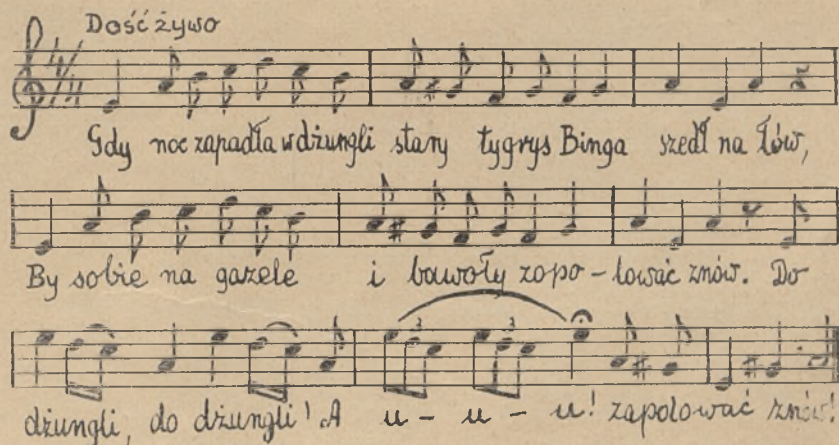 Dość żywo
Gdy noc zapadła w dżungli stary tygrys Binga szedł na łów,
By sobie na gazele i bawoły zapo-lować znów. Do
3 3
dżungli, do dżungli! A u-u-u! zapolować znów!